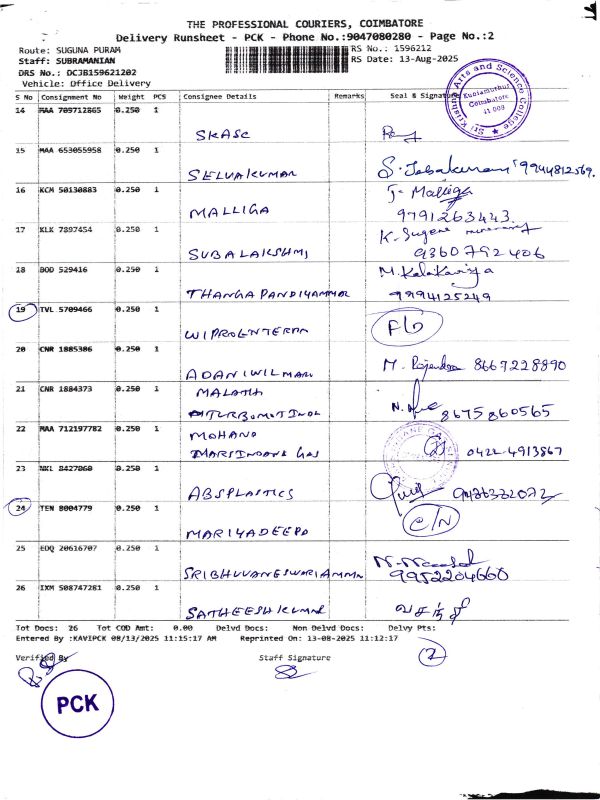 THE PROFESSIONAL COURIERS, COIMBATORE
Delivery Runsheet - PCK - Phone No.:9047080280 - Page No.:2
Route: SUGUNA PURAM RS No.: 1596212
Staff: SUBRAMANIAN RS Date: 13-Aug-2025
DRS No.: DCJB159621202
Vehicle: Office Delivery
S No Consignment No Weight PCS Consignee Details Remarks Seal & Signature
Sri Krishna Arts and Science College
Kuniamuthur
Coimbatore
14 MAA 709712865 0.250 1
SKASC
15 MAA 653055958 0.250 1
SELVAKUMAR 9944812569.
16 KCM 50130883 0.250 1
J. Malliga
MALLIGA 9791263443.
17 KLK 7897454 0.250 1
K. Sugene
SUBALAKSHMI 9360792406
18 BOD 529416 0.250 1
THANGAPANDIYAMMAL 9994125249
19 TVL 5709466 0.250 1
20 CNR 1885386 0.250 1
ADANI WILMAR M. Rajendra 8667228890
21 CNR 1884373 0.250 1
MALATH
8675860565
22 MAA 712197782 0.250 1
MOHAND
GAS 0422-4913867
23 NKL 8427060 0.250 1
ABSPLASTICS
24 TEN 8004779 0.250 1
C/N
MARIYADEEPO
25 EDQ 20616707 0.250 1
SRIBHUVANESWARIAMMN 9952204660
26 IXM 508747281 0.250 1
SATHEESHKUMAR வசந்தி
Tot Docs: 26 Tot COD Amt: 0.00 Delvd Docs: Non Delvd Docs: Delvy Pts:
Entered By :KAVIPCK 08/13/2025 11:15:17 AM Reprinted On: 13-08-2025 11:12:17
2
Verified By Staff Signature
PCK